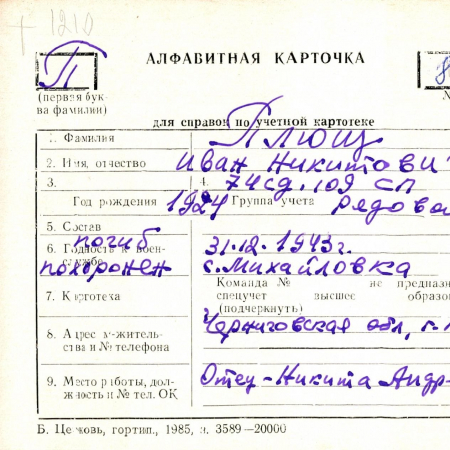 1210
П
АЛФАВИТНАЯ КАРТОЧКА
(первая бук-
ва фамилии)
для справок по учетной картотеке
1. Фамилия Плющ
2. Имя, отчество Иван Никитович
3. 4. 74 сд, 109 сп
Год рождения 1924 Группа учета рядово
5. Состав погиб 31.12.1943 г.
6. Годность к воен-
службе похоронен с. Михайловка
7. Картотека Команда № не предназн
спецучет высшее образо
(подчеркнуть)
8. Адрес м-житель-
ства и № телефона Черниговская обл, г.
9. Место работы, дол-
жность и № тел. ОК Отец-Никита Андр-
Б. Церковь, гортип., 1985, з. 3589—20000